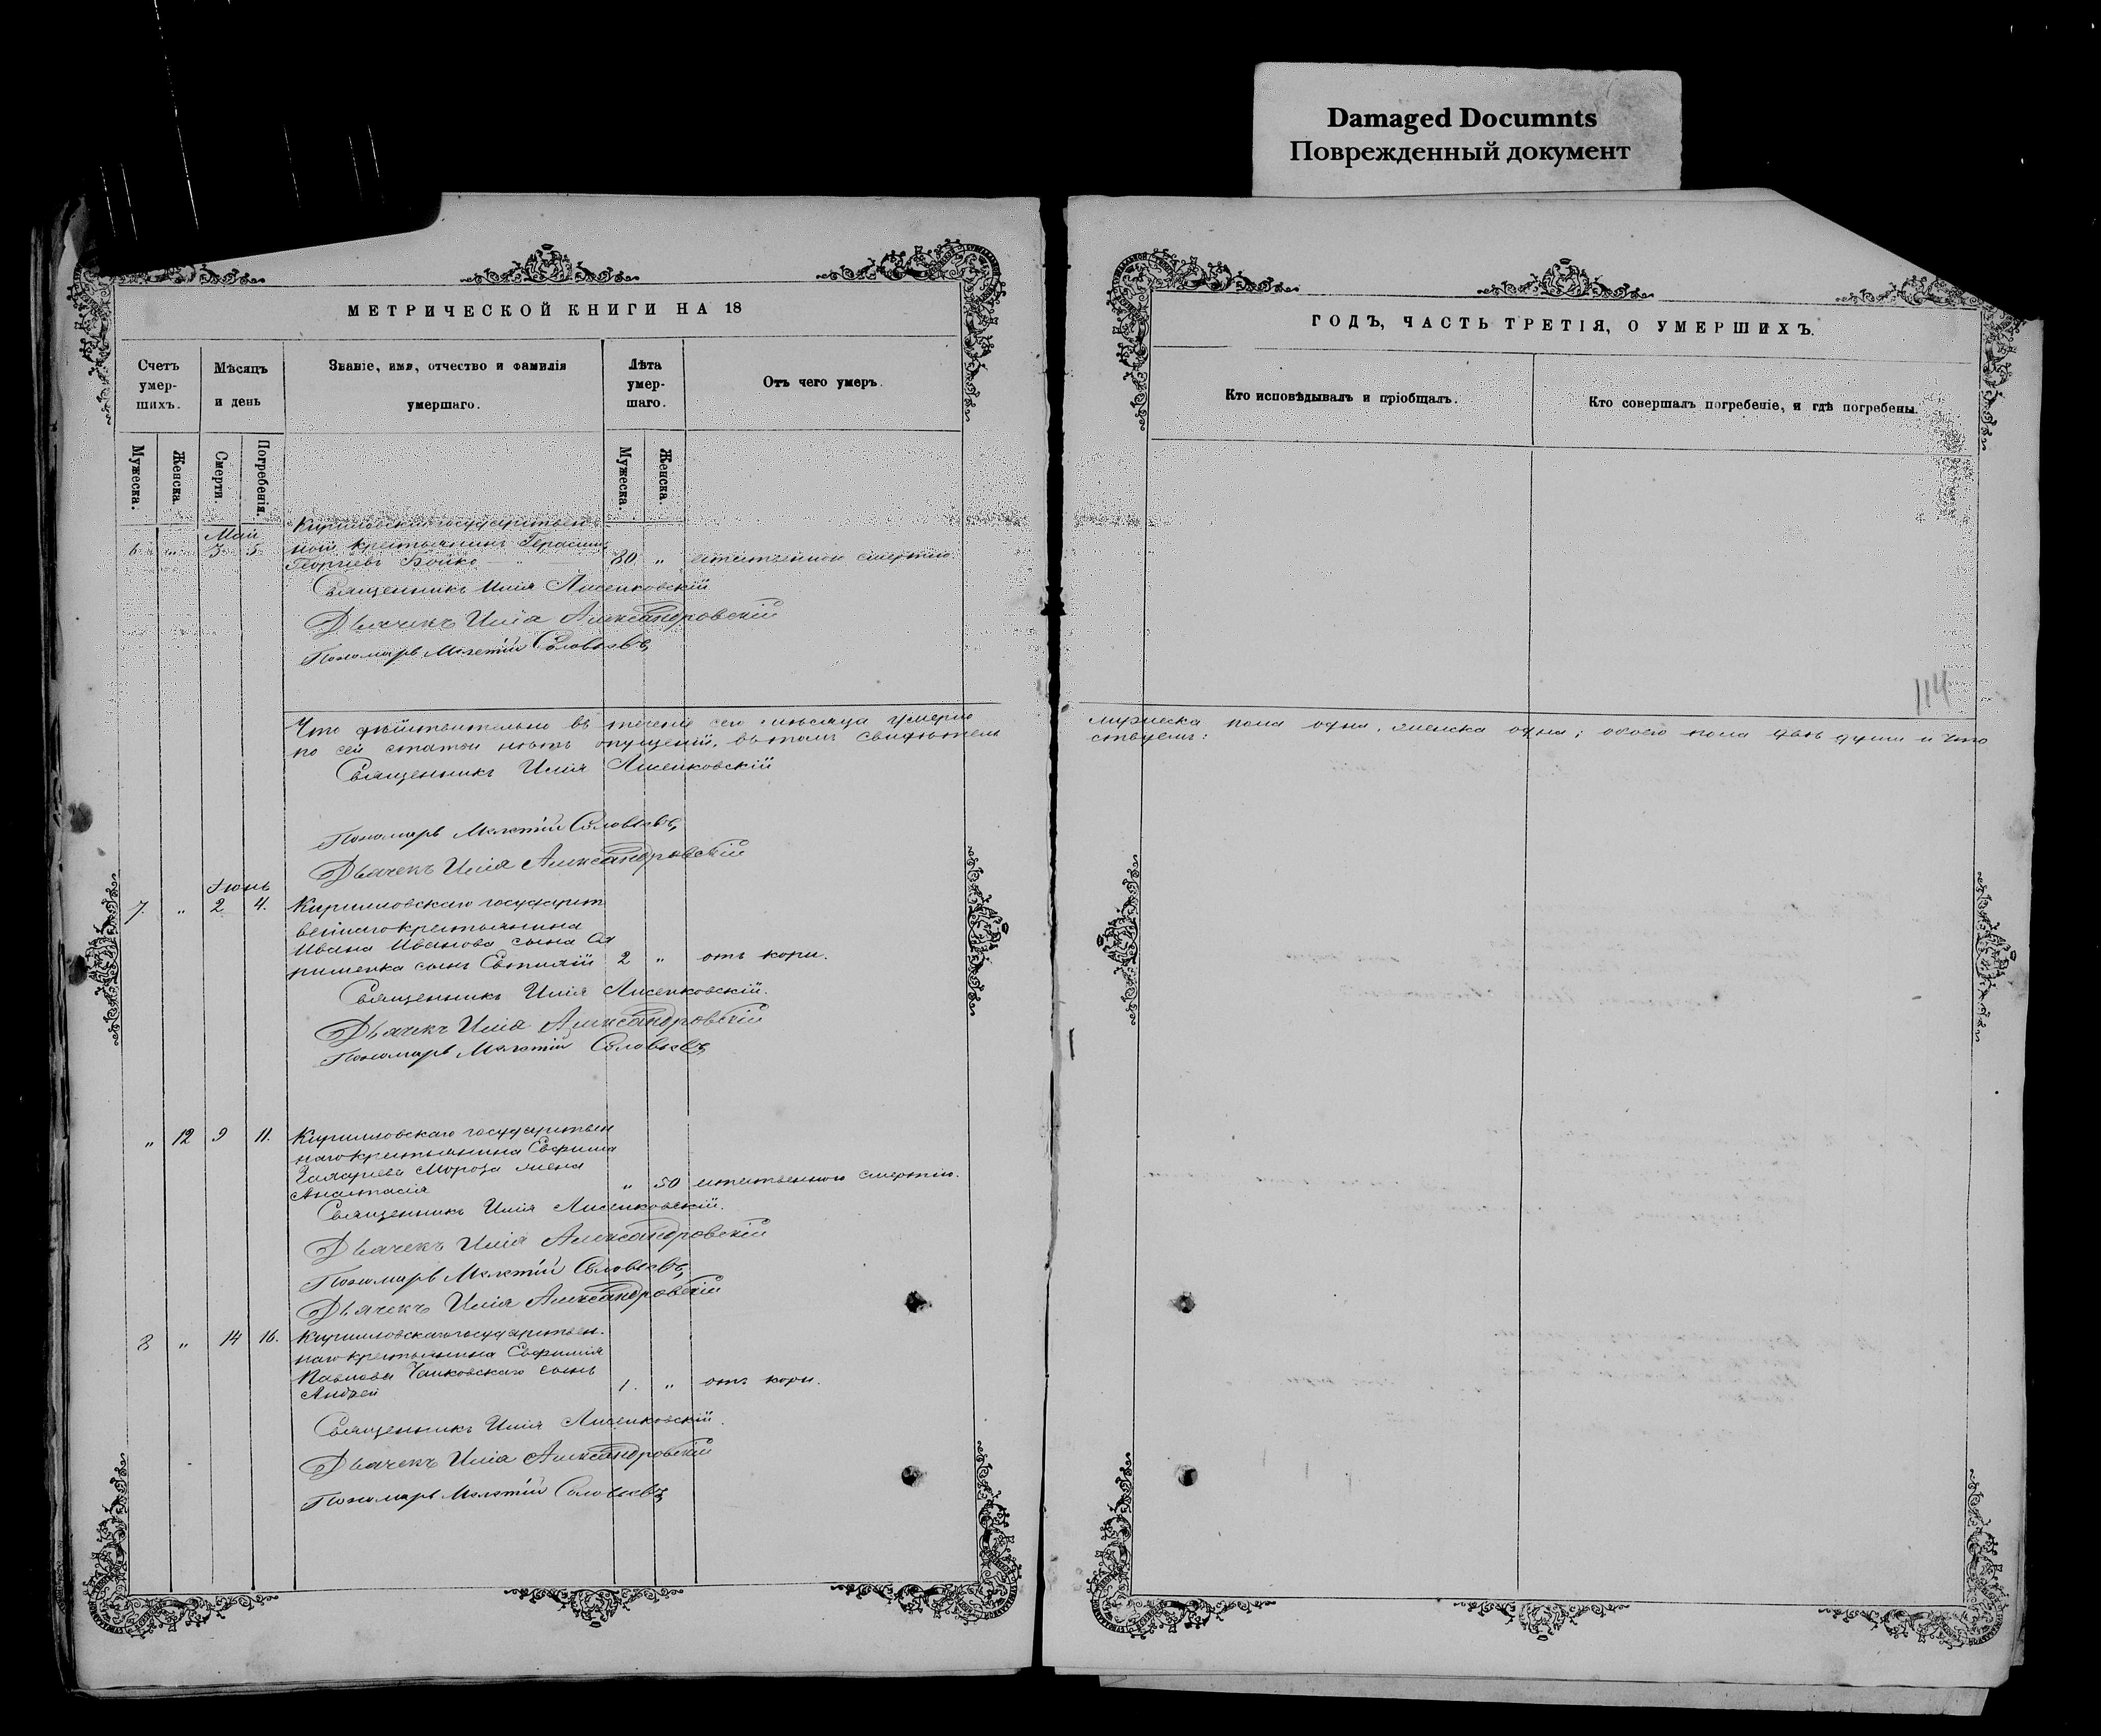 Damaged Documnts
Поврежденный документ
МЕТРИЧЕСКОЙ КНИГИ НА 18
Счетъ умер-шихъ.
Мѣсяцъ и день
Званіе, имя, отчество и фамилія умершаго.
Лѣта умер-шаго.
Отъ чего умеръ.
Мужеска.
Женска.
Смерти.
Погребенія.
Мужеска.
Женска.
Май
Кирилловскій государствен
6 " 3 5 ной крестьянинъ Герасимъ
Георгіевъ Бойко 80 " естественною смертію.
Священникъ Илія Лисенковскій
Дьячекъ Илія Александровскій
Пономарь Мелетій Соловьевъ
Что дѣйствительно въ теченіе сего мѣсяца умерло
по сей статьи нѣтъ опущеній, въ томъ свидѣтель
Священникъ Илія Лисенковскій
Пономарь Мелетій Соловьевъ
Дьячекъ Илія Александровскій
Іюнь
7. " 2 4. Кирилловскаго государст
веннаго крестьянина
Ивана Иванова сына
сынъ 2 " отъ кори.
Священникъ Илія Лисенковскій.
Дьячекъ Илія Александровскій
Пономарь Мелетій Соловьевъ
" 12 9 11. Кирилловскаго государствен
наго крестьянина Евфима
Захаріева Мороза жена
Анастасія " 50 естественною смертію.
Священникъ Илія Лисенковскій.
Дьячекъ Илія Александровскій
Пономарь Мелетій Соловьевъ
Дьячекъ Илія Александровскій
8 " 14 16. Кирилловскаго государствен.
наго крестьянина Евфимія
Павлова Чайковскаго сынъ
Андрей 1. " отъ кори.
Священникъ Илія Лисенковскій.
Дьячекъ Илія Александровскій
Пономарь Мелетій Соловьевъ
ГОДЪ, ЧАСТЬ ТРЕТІЯ, О УМЕРШИХЪ.
Кто исповѣдывалъ и пріобщалъ.
Кто совершалъ погребеніе, и гдѣ погребены.
114
мужеска пола одна, женска одна; обоего пола двѣ души и что
ствуемъ: